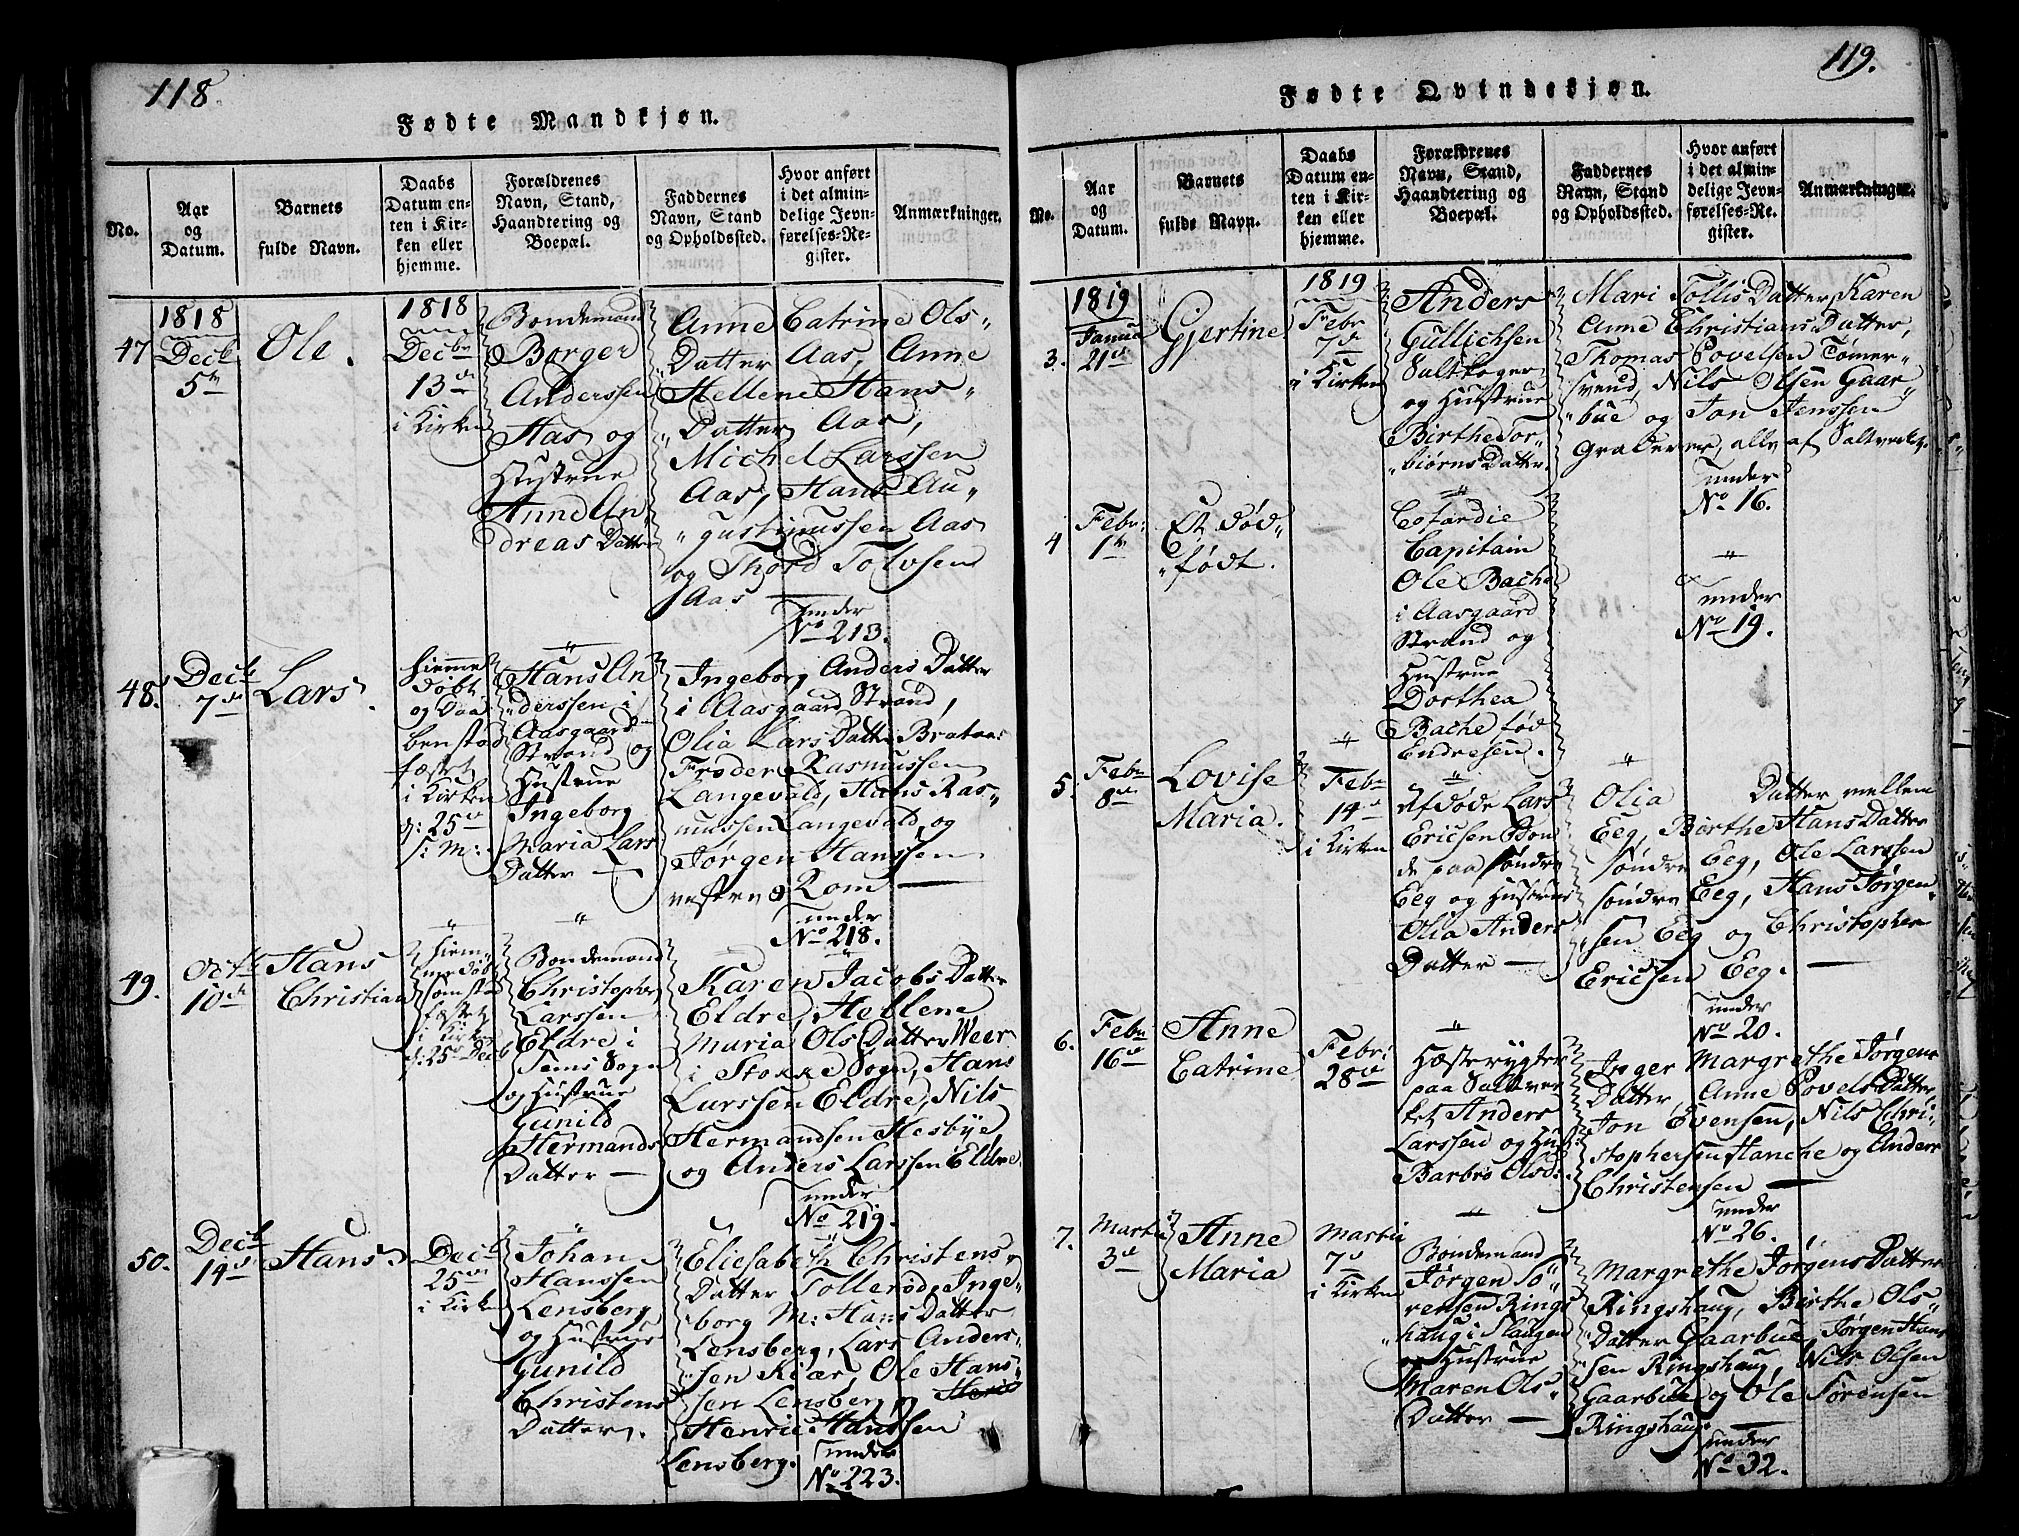 118.
Fødte Mandkjøn.
No.
Aar
og
Datum.
Barnets
fulde Navn.
Daabs
Datum en-
ten i Kir-
ken eller
hjemme.
Forældrenes
Navn, Stand,
Haandtering og
Boepæl.
Faddernes
Navn, Stand
og Opholdssted.
Hvor anført
i det almin-
delige Jevn-
førelses-Re-
gister.
Anmærkninger.
47
1818
Decbr
5te
Ole.
1818
Decbr
13de
i Kirken
Bondemand
Borger
Anderssen
Aas og
Hustrue
Anne An
dreas Datter
Anne Catrine Ols-
Datter Aas, Anne
Hellene Hans
Datter Aas,
Michel Larssen
Aas, Hans Au
gustinussen Aas
og Thord Tolvsen
Aas
under
No 213.
48.
Decbr
7de
Lars.
hiemme
døbt
og Daa
ben stad
fæstet
i Kirken
d: 25de
s: M:
Hans An
derssen i
Aasgaard
Strand og
Hustrue
Ingeborg
Maria Lars
Datter
Ingeborg Anders Datter
i Aasgaard Strand,
Olia Lars Datter Brataas
Froder Rasmussen
Langevald, Hans Ras-
mussen Langevald, og
Jørgen Hanssen
vestre Rom
under
No 218.
49.
Octbr
10de
Hans
Christian
hiem
me døbt
som stad
fæstet
i Kirken
d: 25de Decb
Bondemand
Christopher
Larssen
Eldre i
Sems Sogn
og Hustrue
Gunild
Hermands
Datter
Karen Jacobs Datter
Eldre, Hellene
Maria Ols Datter Weer
i Stokke Sogn, Hans
Larssen Eldre, Nils
Hermandsen Hesbye
og Anders Larssen Eldre
under
No 219.
50.
Decbr
14de
Hans
Decbr
25de
i Kirken
Johan
Hanssen
Lensberg
og Hustrue
Gunild
Christens
Datter.
Eliesabeth Christens
Datter Tollerød, Inge
borg M: Hans Datter
Lensberg, Lars Anders
sen Kiær, Ole Hans
sen Lensberg, og
Henric Hanssen
Lensberg.
under
No 223.
119.
Fødte Qvindekjøn.
No.
Aar
og
Datum.
Barnets
fulde Navn.
Daabs
Datum en-
ten i Kir-
ken eller
hjemme.
Forældrenes
Navn, Stand,
Haandtering og
Boepæl.
Faddernes
Navn, Stand
og Opholdssted.
Hvor anført
i det almin-
delige Jevn-
førelses-Re-
gister.
Anmærkninger.
3.
1819
Januar
21de
Gjertine
1819
Febr
7de
i Kirken
Anders
Gullichsen
Saltkoger
og Hustrue
Birthe Tor
biørns Datter.
Mari Tollis Datter, Karen
Anne Christians Datter,
Thomas Povelsen Tømer-
svend, Nils Olsen Gaar
bue og Jon Jenssen
Graderer, alle af Saltverket.
under
No 16.
4
Febr:
1te
Et død
født.
Capitain
Ole Bache
i Aasgaard
Strand og
Hustrue
Dorthea
Bache fød
Endresen.
under
No 19.
5.
Febr
8de
Lovise
Maria.
Febr
14de
i Kirken
Afdøde Lars
Ericsen Bon
de paa søndre
Eeg og Hustrue
Olia Anders
Datter
Olia Datter mellem
Eeg, Birthe Hans Datter
søndre Eeg, Ole Larssen
søndre Eeg, Hans Jørgen
sen Eeg og Christopher
Ericsen Eeg.
under
No 20.
6.
Febr
16de
Anne
Catrine
Febr:
28de
Hæsterygter
paa Saltver
ket Anders
Larssen og Hust:
Barbro Olsd:
Inger Margrethe Jørgens
Datter, Anne Povels Datter,
Jon Evensen, Nils Chri-
stophersen Hanche og Anders
Christensen
under
No 26.
7.
Martii
3de
Anne
Maria
Martii
7de
i Kirken
Bondemand
Jørgen Sø
rensen Rings
haug i Slaugen
og Hustrue
Maren Ols
Datter
Margrethe Jørgens Datter
Ringshaug, Birthe Ols
Datter Gaarbue, Jørgen Hans
sen Ringshaug, Nils Olsen
Gaarbue og Ole Sørensen
Ringshaug
under
No 32.